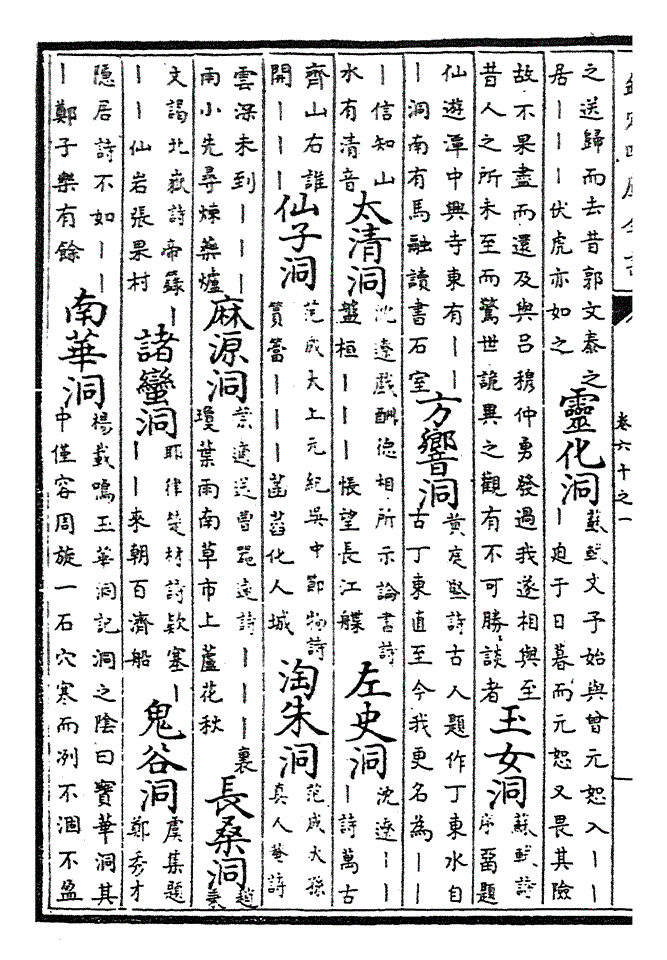 欽定四庫全書
卷六十之一
之送歸而去昔郭文泰之
居｜｜｜伏虎亦如之
靈化洞
蘇軾文子始與曾元恕入｜｜
｜迫于日暮而元恕又畏其險
故不果盡而還及與呂穆仲勇發過我遂相與至
昔人之所未至而驚世詭異之觀有不可勝談者
玉女洞
蘇軾詩
序留題
仙遊潭中興寺東有｜｜
｜洞南有馬融讀書石室
方響洞
黄庭堅詩古人題作丁東水自
古丁東直至今我更名為｜｜
｜信知山
水有清音
太清洞
沈遼戲酬德相所示論書詩
盤桓｜｜｜悵望長江艓
左史洞
沈遼｜｜
｜詩萬古
齊山右誰
開｜｜｜
仙子洞
范成大上元紀吳中節物詩
篔簹｜｜｜菡萏化人城
淘朱洞
范成大孫
真人菴詩
雲深未到｜｜｜
雨小先尋煉藥爐
麻源洞
葉適送曹器遠詩｜｜｜裏
瓊葉雨南草市上蘆花秋
長桑洞
趙
秉
文謁北嶽詩帝籙｜
｜｜仙岩張果村
諸蠻洞
耶律楚材詩欵塞｜
｜｜來朝百濟船
鬼谷洞
虞集題
鄭秀才
隱居詩不如｜｜
｜鄭子樂有餘
南華洞
楊載鳴玉華洞記洞之陰曰寶華洞其
中僅容周旋一石穴寒而冽不涸不盈